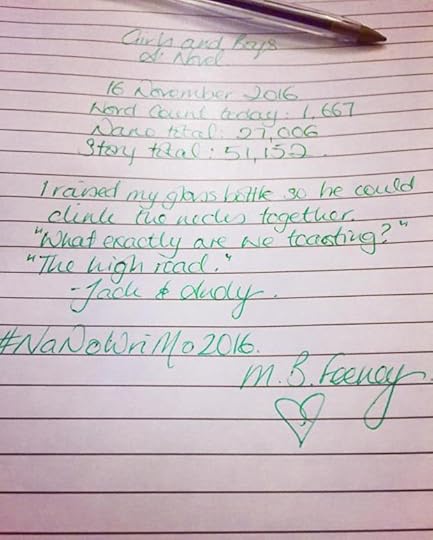 Girls and Boys
A Novel
16 November 2016
Word count today: 1,667
Nano total: 27,006
Story total: 51,152
I raised my glass bottle so he could
clink the necks together.
"What exactly are we toasting?"
"The high road."
-Jack & Andy.
#NaNoWriMo2016.
M.B. Feeney